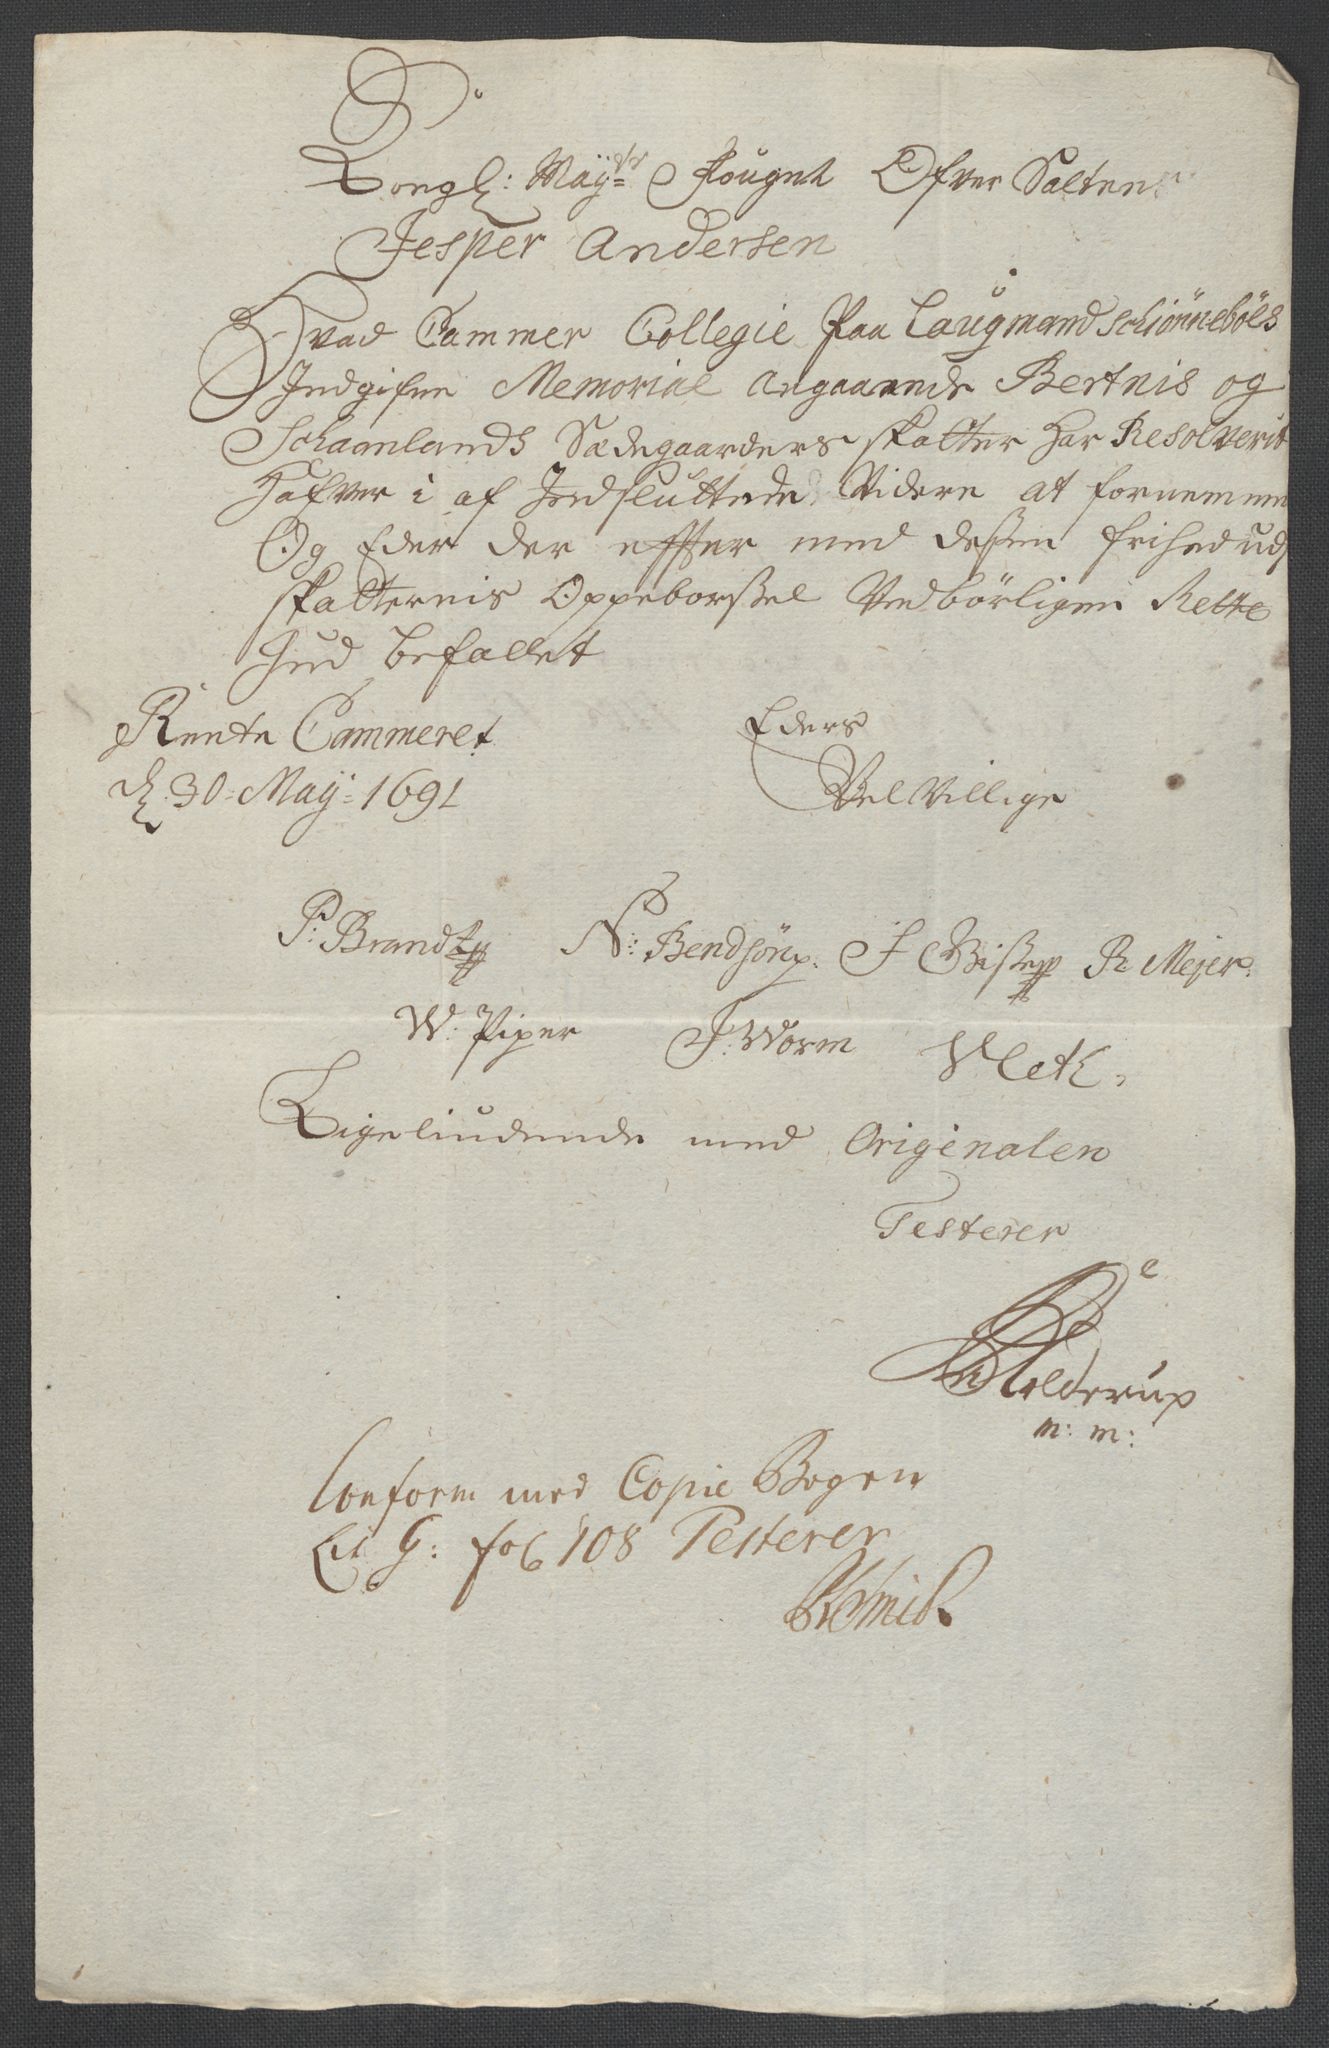 Kongl: May:ts Fougat Ofver Salten
Jesper Andersen
Hvad Cammer Collegie Paa Laugmand Schiönnebóls
Indgifne Memorial Angaaende Bertnis og
Schaanlands Sædegaarders skatter har Resolverit
Hafver i af Indsluttede Videre at fornemme
Og Eder der effter med deßen frihed ud
skatternis Oppeborßel Vedbörligen Rette
Jud befallet
Rente Cammeret
d. 30: Maÿ: 1691
Eders
VelVillige
P: Brandt N: Bendsön J Wiße R Mejer.
W: Piper J: Worm
Ligeliudende med Originalen
Testerer
Tolderup
m: m:
Conform med Copie Bogen
Lit G: fol 108 Testerer
Schmidt